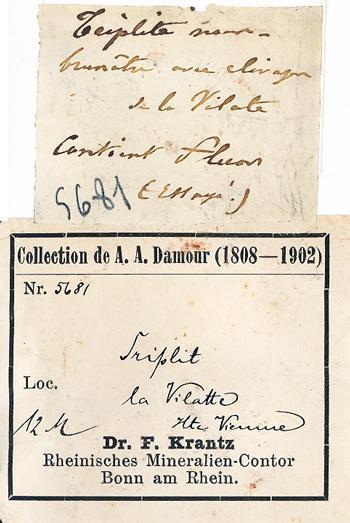 Triplite
brunâtre avec clivages
de la Vilate
Contient fluor
(Essayé.)
5681
Collection de A. A. Damour (1808—1902)
Nr. 5681
Triplit
Loc. la Vilatte
12 M Hte Vienne
Dr. F. Krantz
Rheinisches Mineralien-Contor
Bonn am Rhein.